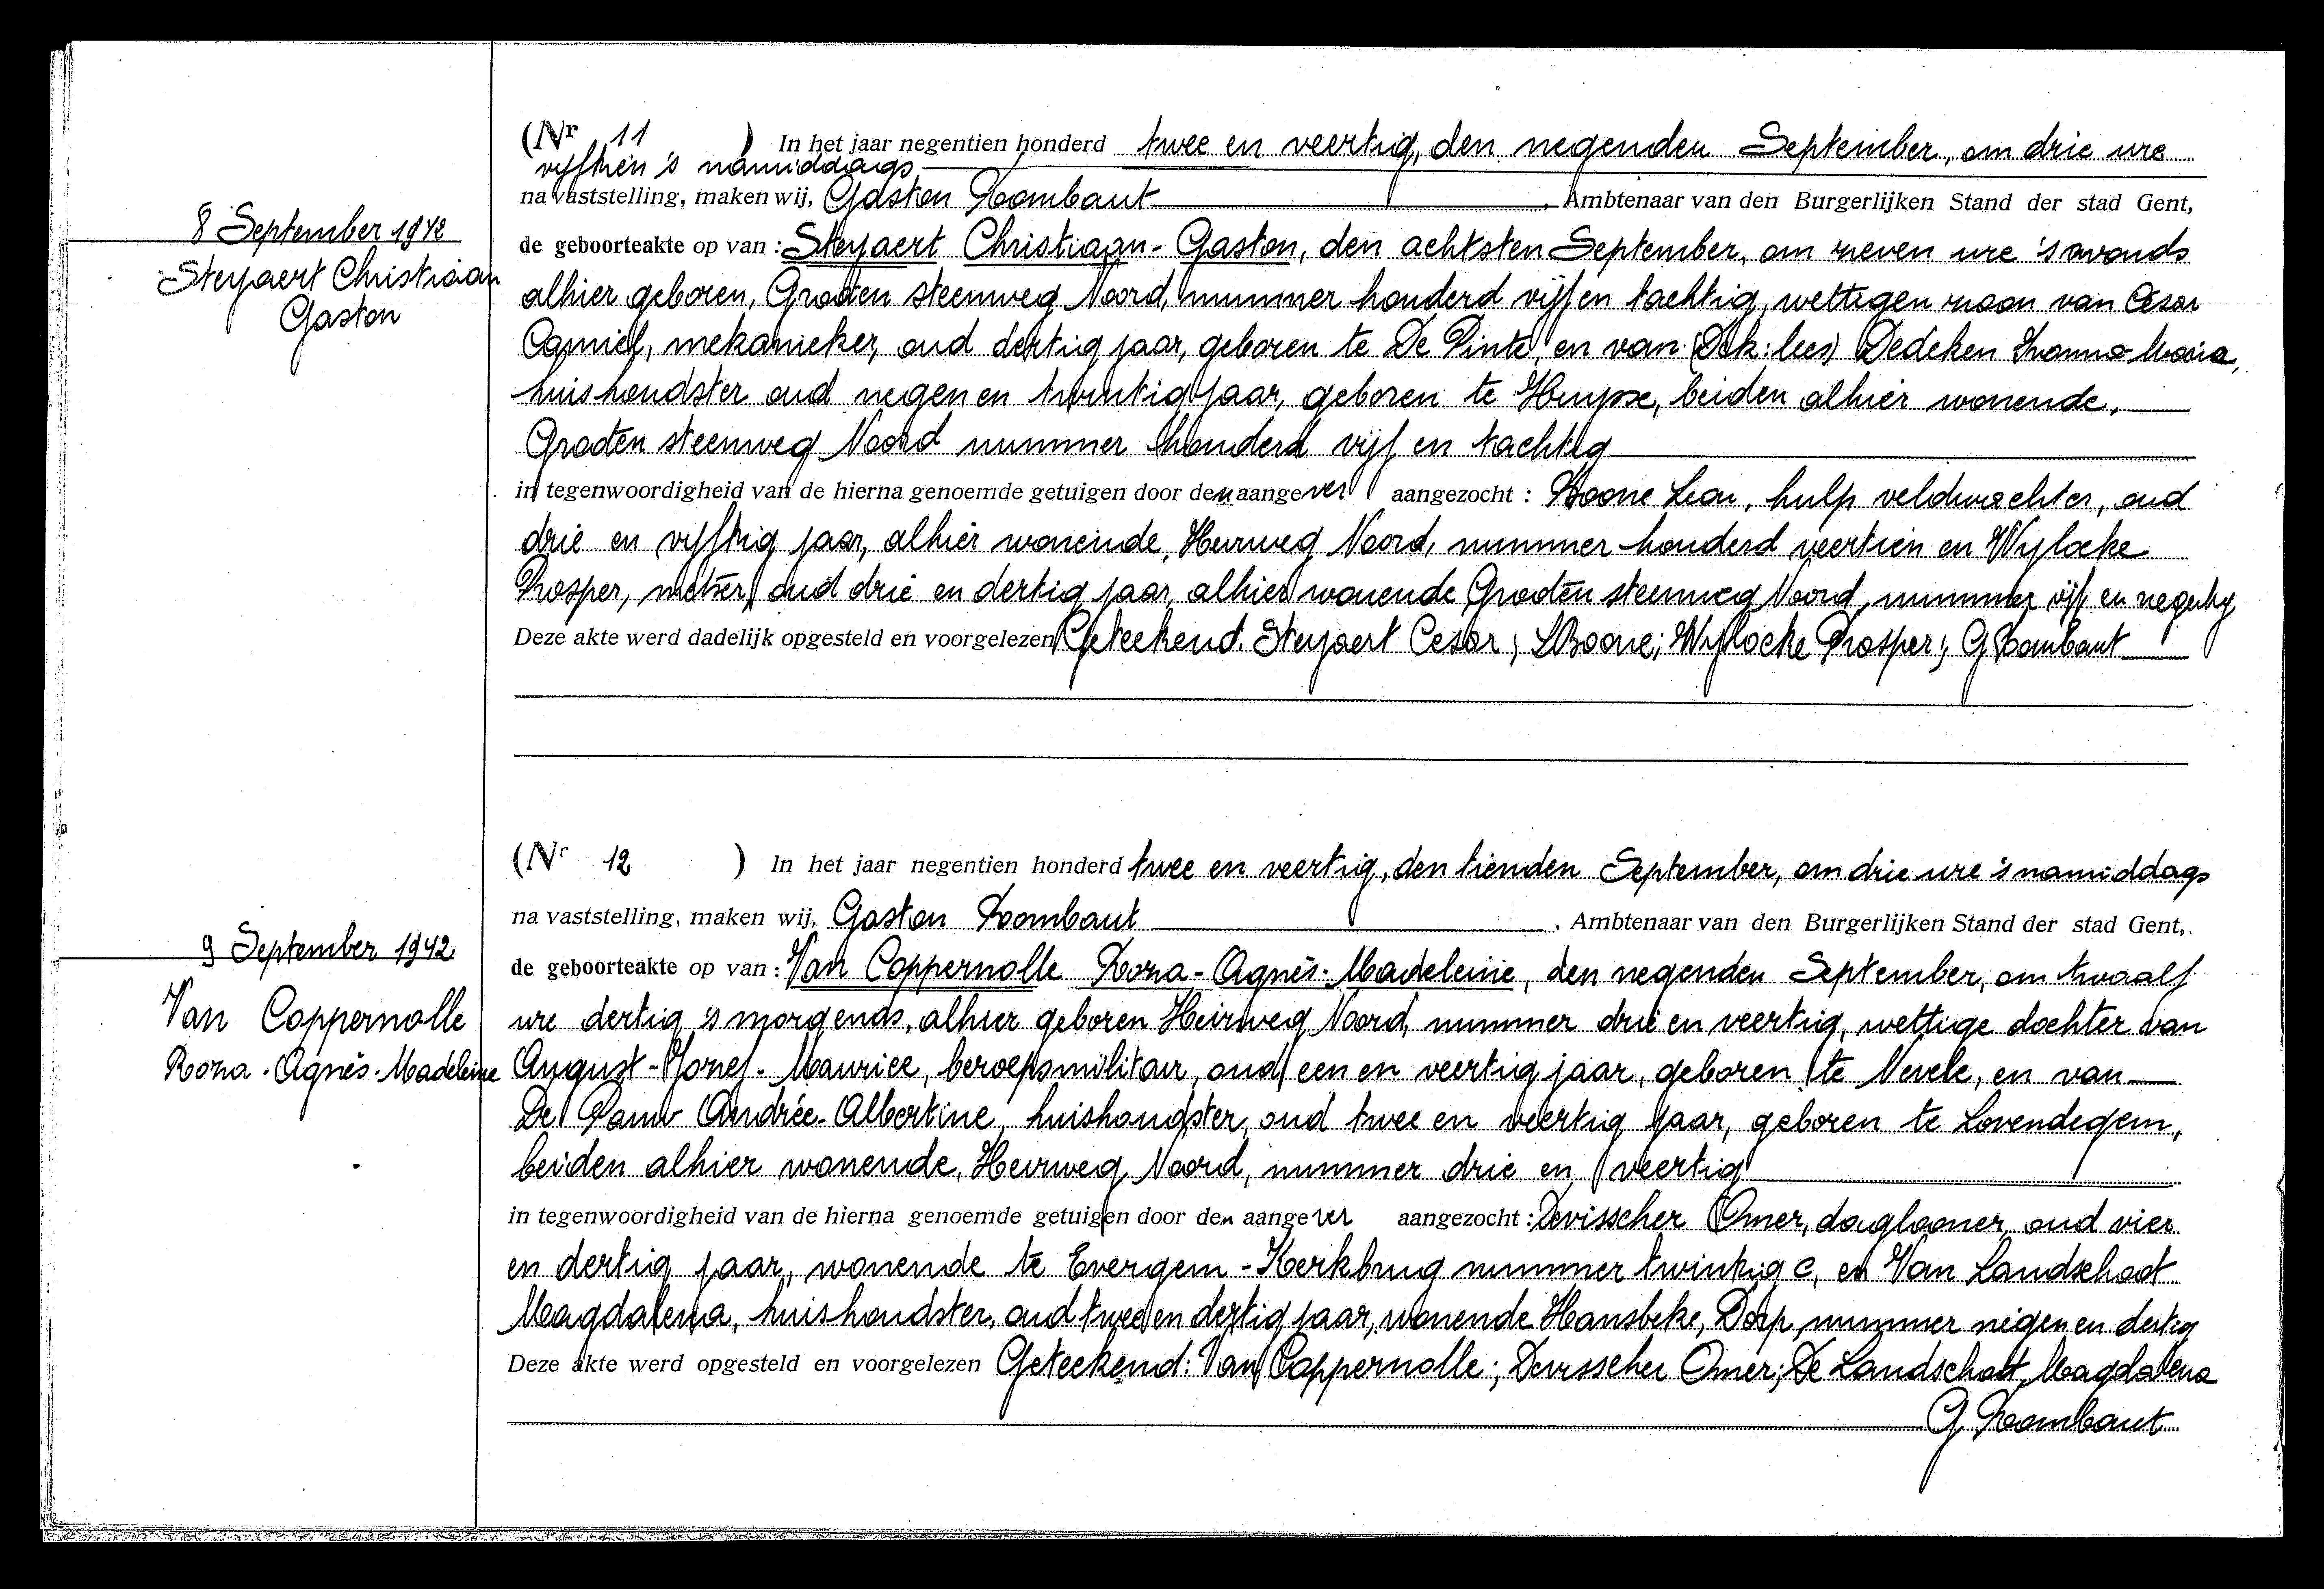 (Nr 11 ) In het jaar negentien honderd twee en veertig, den negenden September, om drie ure
vijftien 's namiddags
na vaststelling, maken wij, Gaston Rombaut , Ambtenaar van den Burgerlijken Stand der stad Gent,
8 September 1942
Steyaert Christiaan
Gaston
de geboorteakte op van : Steyaert Christiaan - Gaston, den achtsten September, om zeven ure 's avonds
alhier geboren, Grooten steenweg Noord, nummer honderd vijf en tachtig, wettigen zoon van Cesar
Camiel, mekanieker, oud dertig jaar, geboren te De Pinte, en van (Dek: lees) Dedeken Ivonna-Maria,
huishoudster oud negen en twintig jaar, geboren te Huysse, beiden alhier wonende,
Grooten steenweg Noord nummer honderd vijf en tachtig
in tegenwoordigheid van de hierna genoemde getuigen door den aangever aangezocht : Boone Leon, hulp veldwachter, oud
drie en vijftig jaar, alhier wonende, Heirweg Noord, nummer honderd veertien en Wylocke
Prosper, metser, oud drie en dertig jaar, alhier wonende Grooten steenweg Noord, nummer vijf en negentig
Deze akte werd dadelijk opgesteld en voorgelezen Geteekend. Steyaert Cesar; L Boone; Wylocke Prosper; G Rombaut
(Nr 12 ) In het jaar negentien honderd twee en veertig, den tienden September, om drie ure 's namiddags
na vaststelling, maken wij, Gaston Rombaut , Ambtenaar van den Burgerlijken Stand der stad Gent,
9 September 1942
Van Coppernolle
Roza - Agnès - Madeleine
de geboorteakte op van : Van Coppernolle Roza - Agnès - Madeleine, den negenden September, om twaalf
ure dertig 's morgends, alhier geboren Heirweg Noord, nummer drie en veertig, wettige dochter van
August - Jozef - Maurice, beroepsmilitair, oud een en veertig jaar, geboren te Nevele, en van
De Pauw Andrée - Albertine, huishoudster, oud twee en veertig jaar, geboren te Lovendegem,
beiden alhier wonende, Heirweg Noord, nummer drie en veertig
in tegenwoordigheid van de hierna genoemde getuigen door den aangever aangezocht : Devisscher Omer, daglooner, oud vier
en dertig jaar, wonende te Evergem - Kerkbrug nummer twintig c, en Van Landschoot
Magdalena, huishoudster, oud twee en dertig jaar, wonende Hansbeke, Dorp, nummer negen en dertig
Deze akte werd opgesteld en voorgelezen Geteekend: Van Coppernolle; Devisscher Omer; De Landschoot Magdalena
G Rombaut